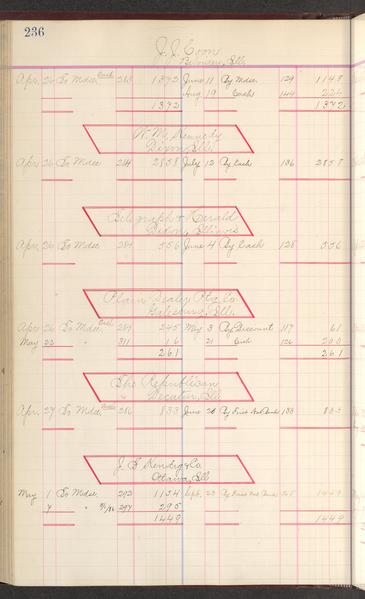 236
J. J. Coon
Ills
Apr. 26 To Mdse. Cash 283 1372 June 11 By Mdse. 129 1148
Aug 19 Cash 144 224
1372 1372
W. M. Kennedy
Dixon, Ills.
Apr. 26 To Mdse. 284 2858 July 12 By Cash 136 2858
Telegraph & Herald
Dixon, Illinois
Apr. 26 To Mdse. 284 556 June 4 By Cash 128 556
Plain Dealer Ptg. Co.
Galesburg, Ill.
Apr. 26 To Mdse. Cash 284 245 May 3 By Discount 117 61
May 22 " 311 16 21 Cash 126 200
261 261
The Republican
Decatur, Ill.
Apr. 27 To Mdse. 286 833 June 26 By First Nat Bank 133 833
J. E. Kendig & Co.
Ottawa, Ill
May 1 To Mdse. 292 1154 Sept. 23 By First Nat Bank 1449
4 " 294 295
1449 1449